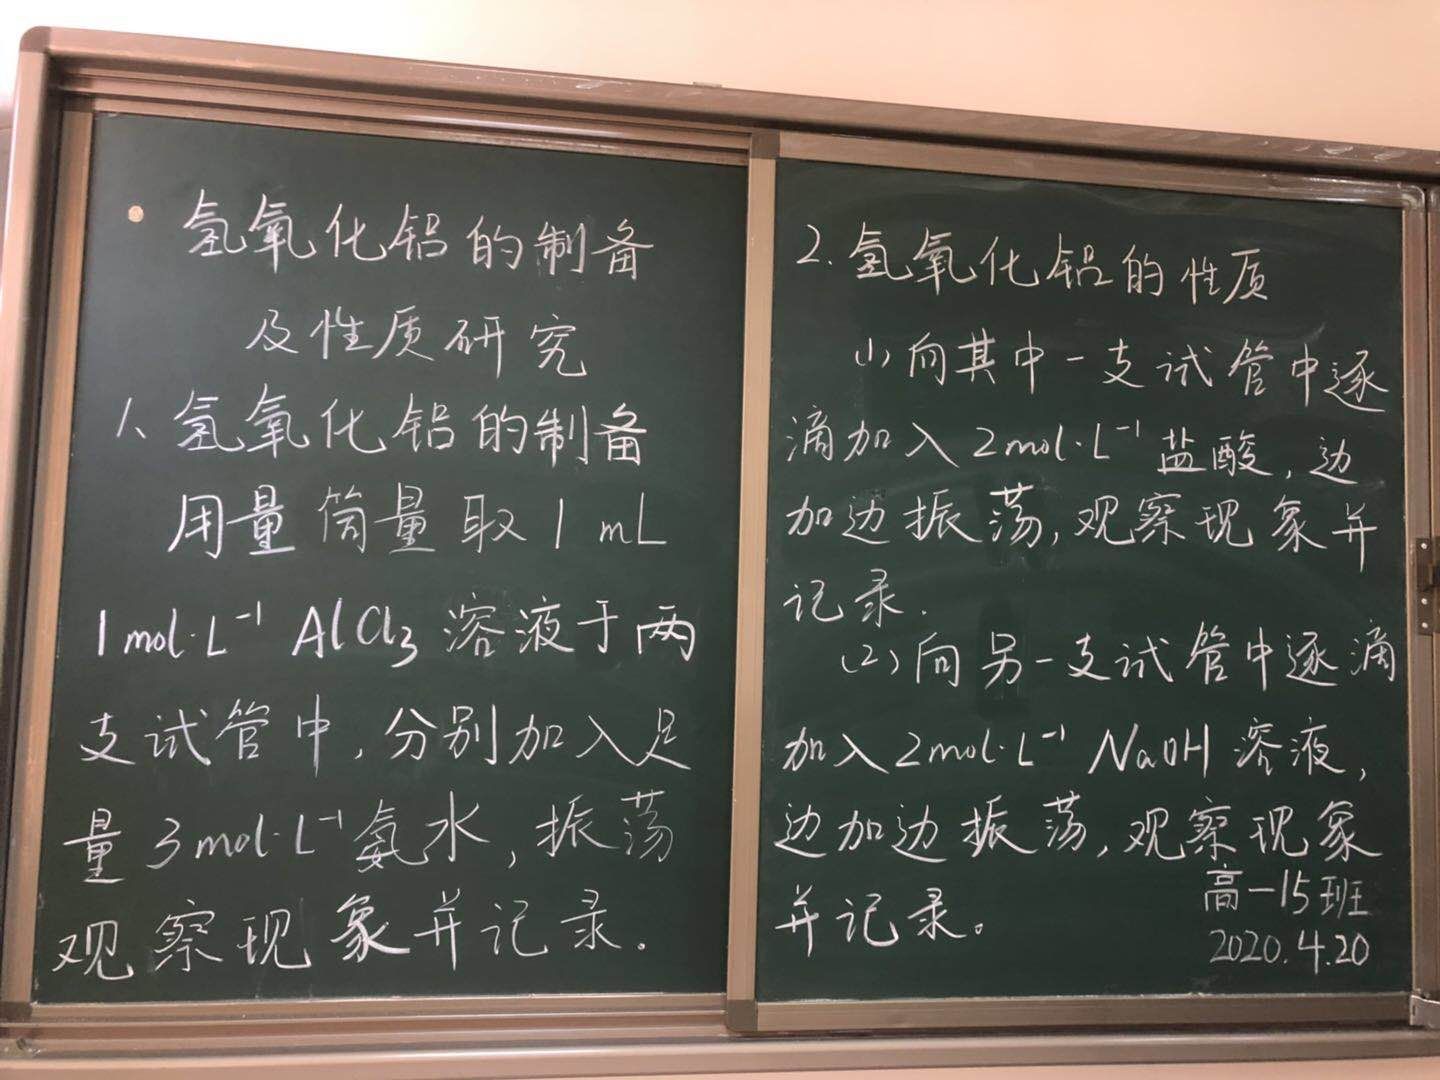 氢氧化铝的制备
及性质研究
1、氢氧化铝的制备
用量筒量取1mL
1mol·L⁻¹ AlCl₃溶液于两
支试管中,分别加入足
量3mol·L⁻¹氨水,振荡
观察现象并记录。
2.氢氧化铝的性质
(1)向其中一支试管中逐
滴加入2mol·L⁻¹盐酸,边
加边振荡,观察现象并
记录.
(2)向另一支试管中逐滴
加入2mol·L⁻¹ NaOH溶液,
边加边振荡,观察现象
并记录。
高一15班
2020.4.20